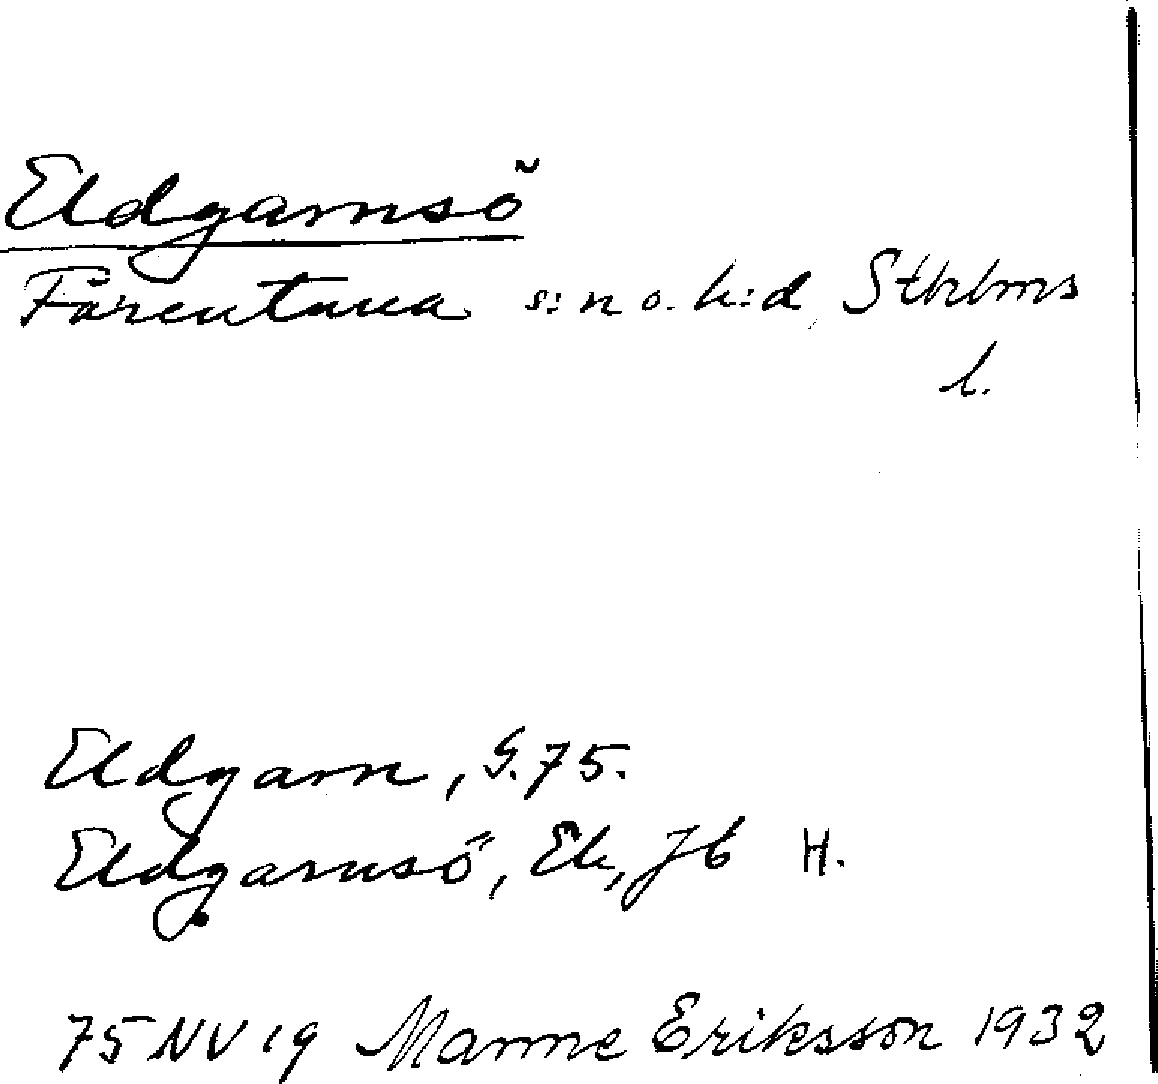 Eldgarnsö
Färentuna s:n o. h:d, Sthlms
l.
Eldgarn, G.75.
Eldgarnsö, Ek, Jb H.
75 NV 19 Manne Eriksson 1932